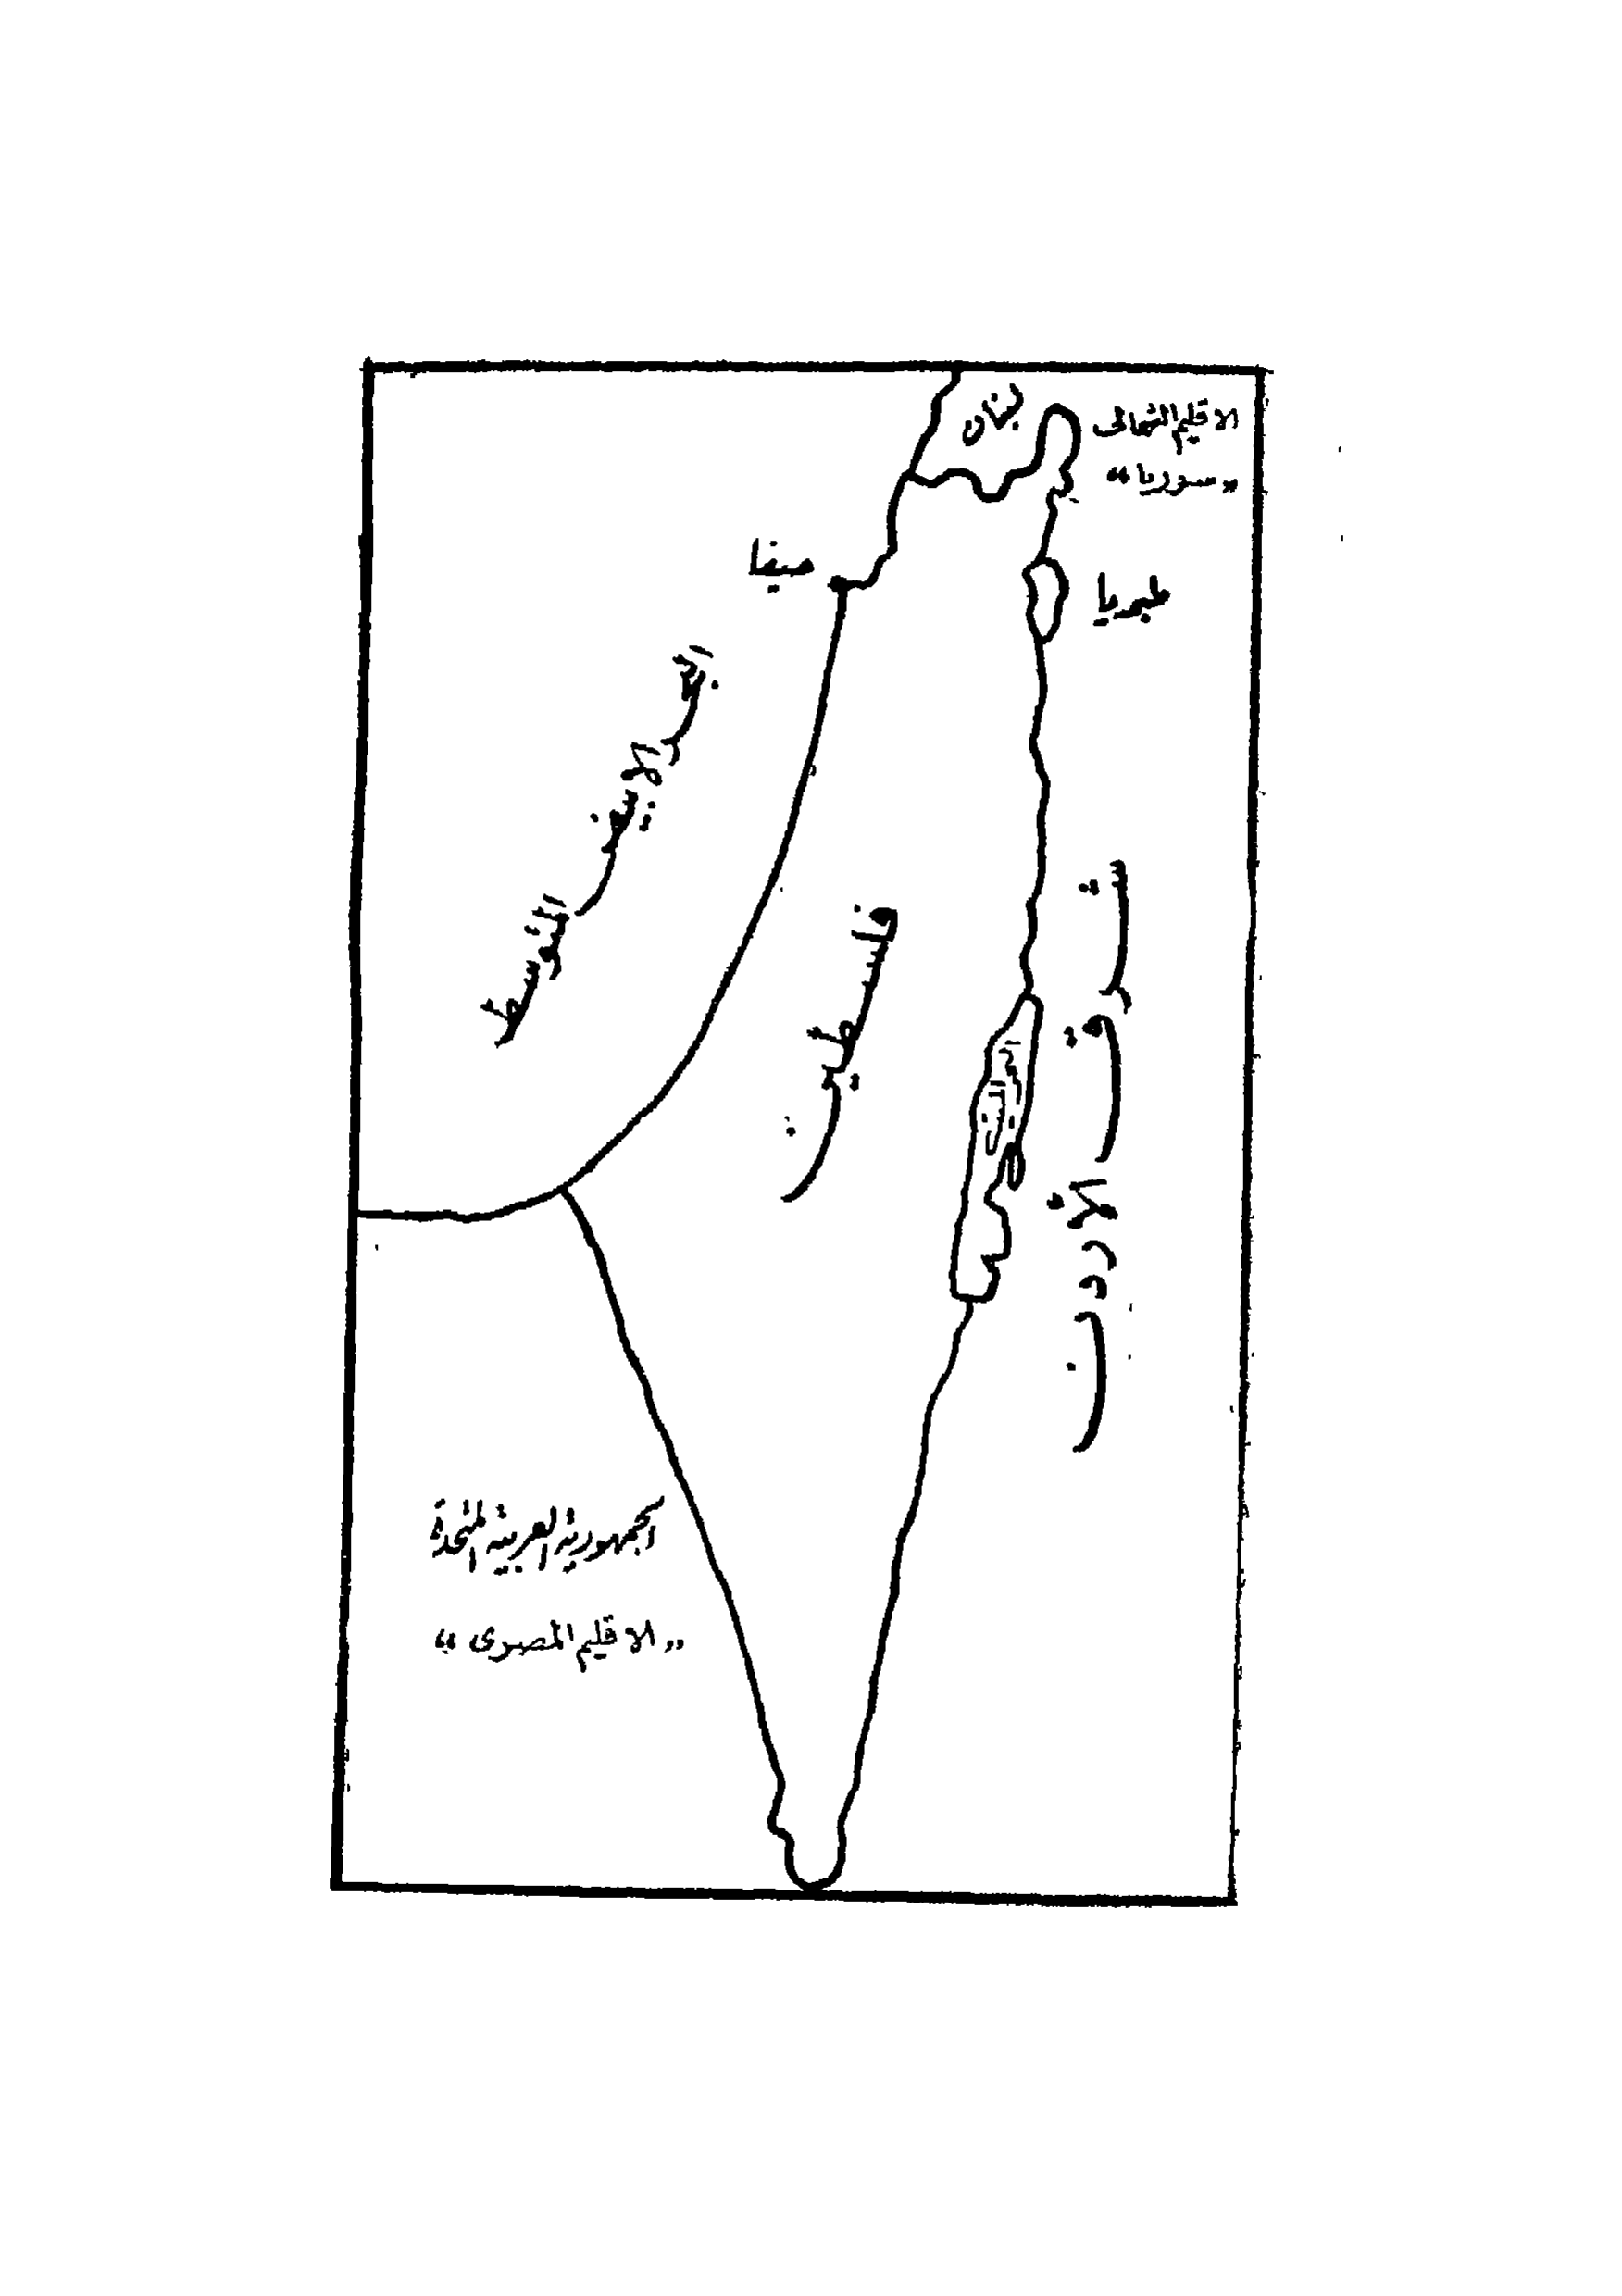 لبنان
الاقليم الشمالى
«سوريا»
حيفا
طبريا
البحر الأبيض المتوسط
فلسطين
شرق الأردن
البحر الميت
الجمهورية العربية المتحدة
«الاقليم المصرى»